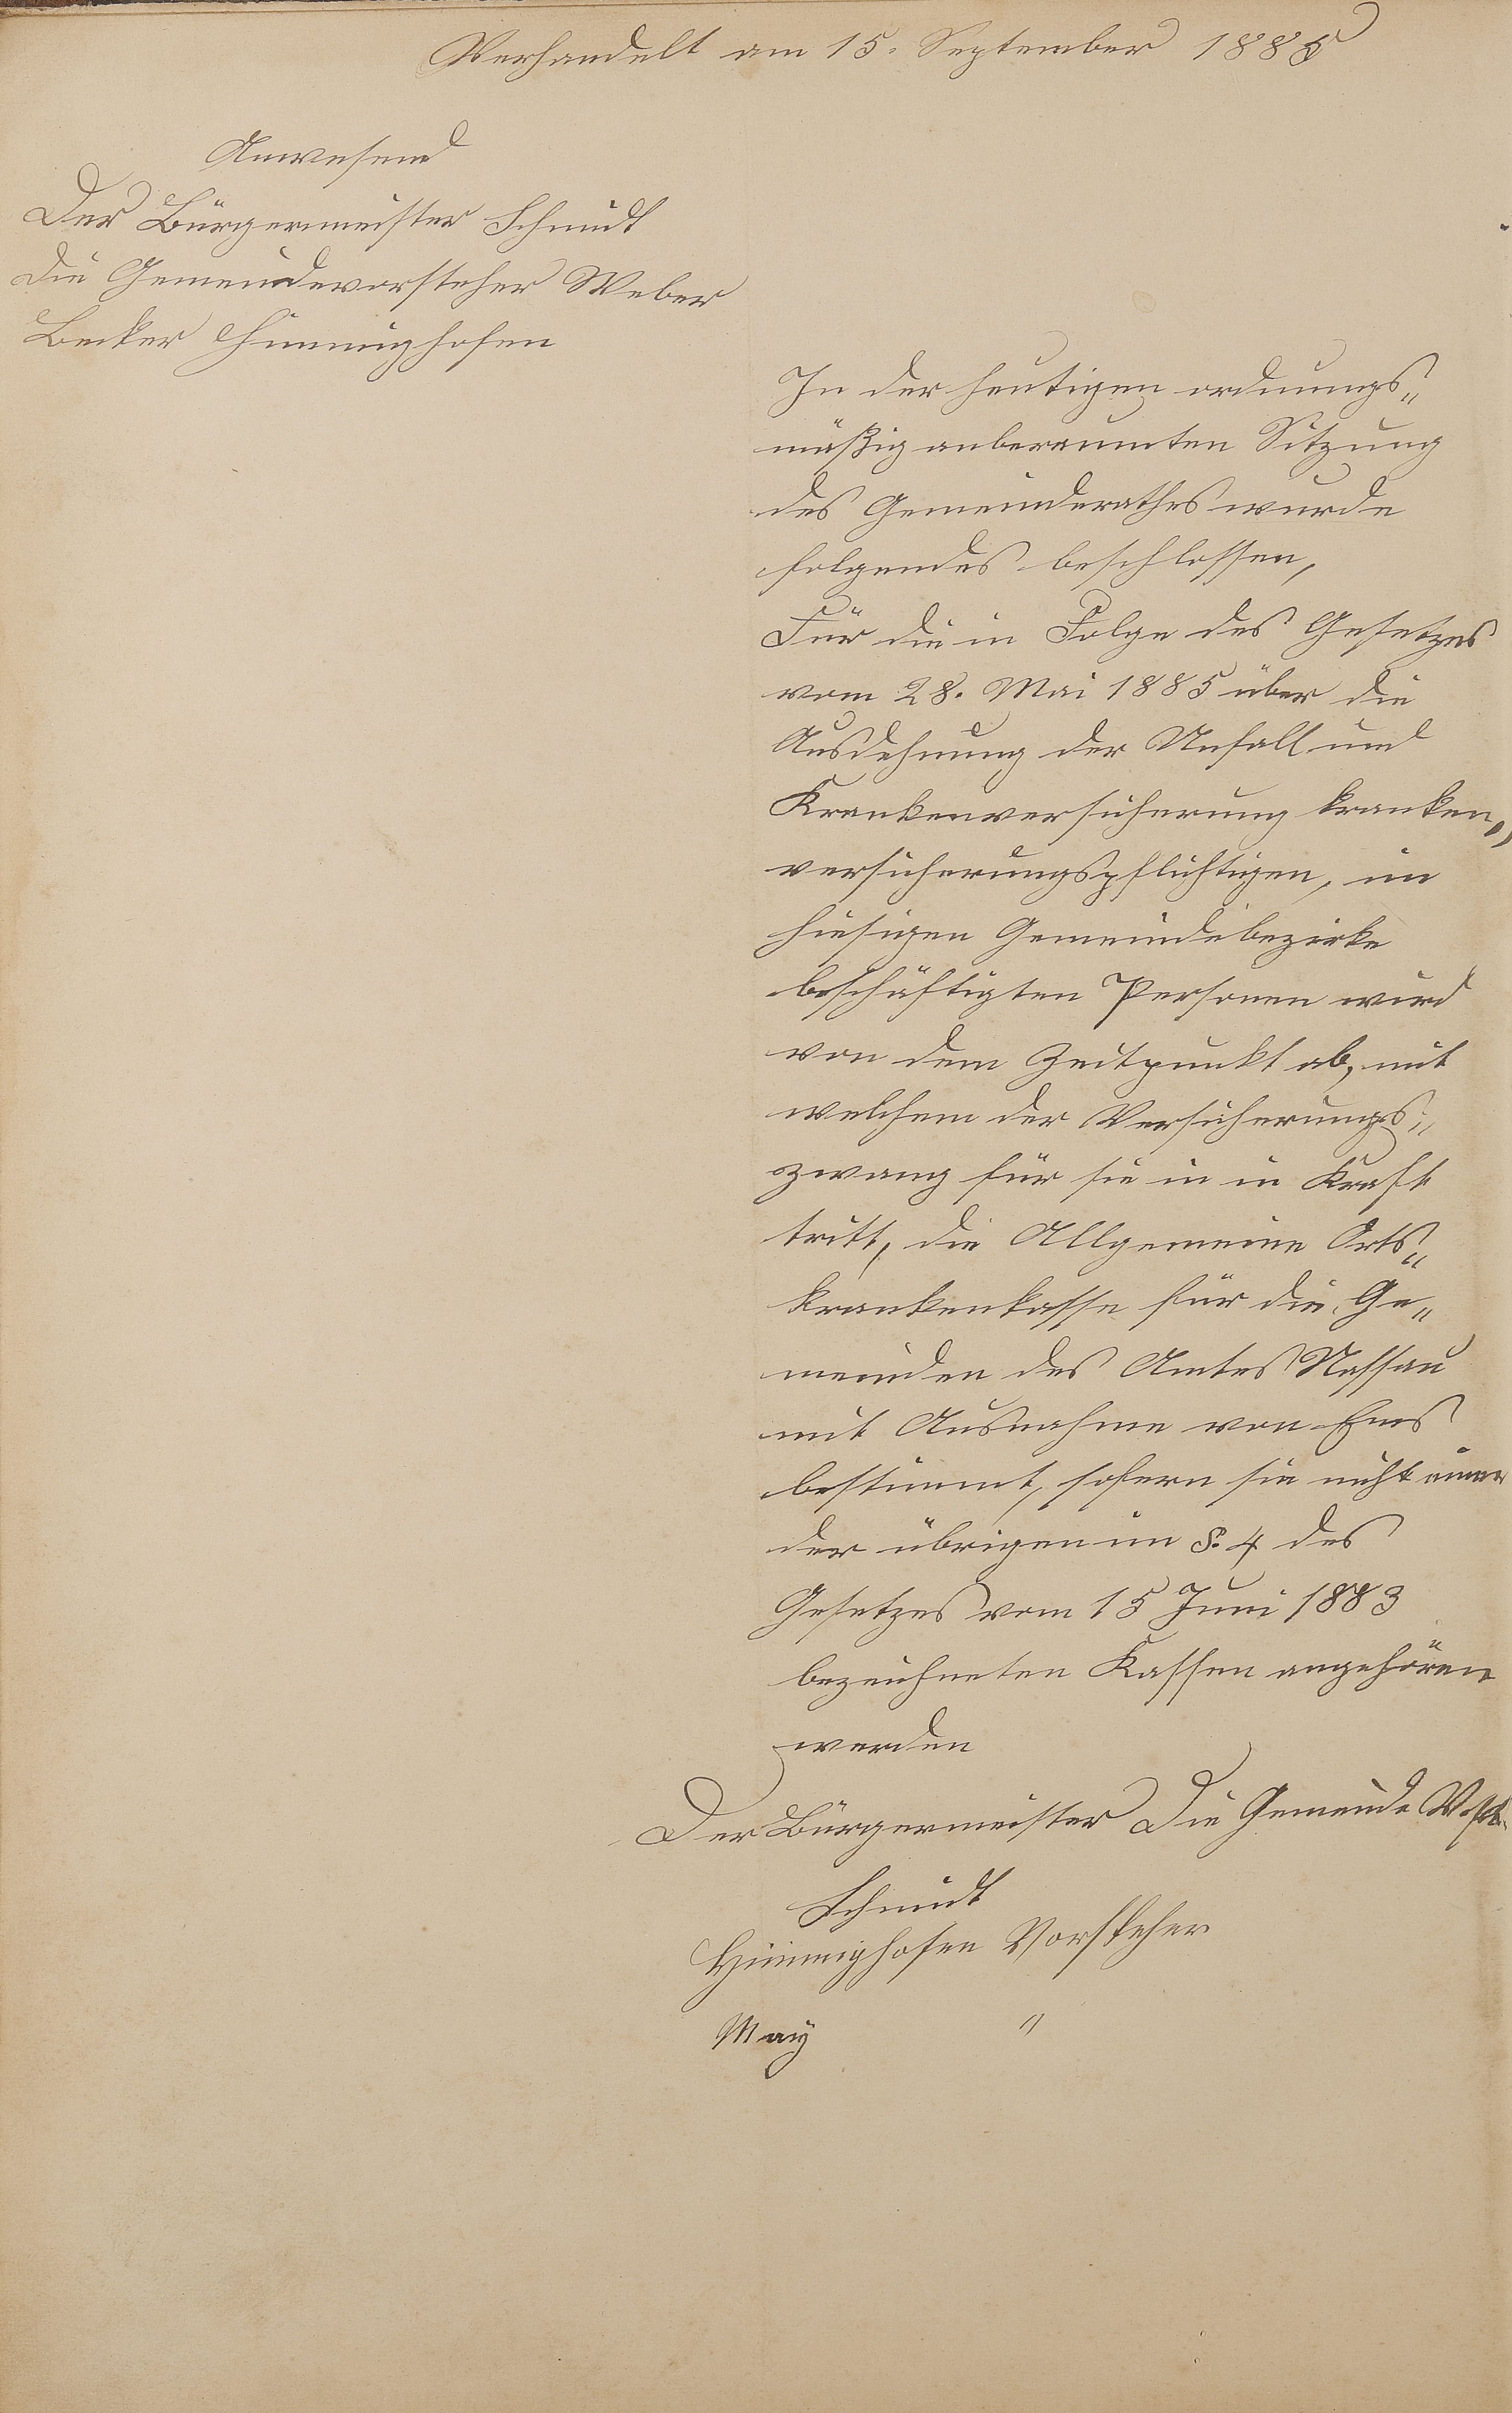 Verhandelt am 15. September 1885
Anwesend
Der Bürgermeister Schmidt
die Gemeindevorsteher Weber
Becker Himmighofen
In der heutigen ordnungs„
mäßig anberaumten Sitzung
des Gemeinderathes wurde
folgendes beschlossen,
Für die in Folge des Gesetzes
vom 28. Mai 1885 über die
Ausdehnung der Unfall und
Krankenversicherung kranken„
versicherungspflichtigen, im
hiesigen Gemeindebezirke
beschäftigten Personen wird
von dem Zeitpunkt ab, mit
welchem der Versicherungs„
zwang für sie in in Kraft
tritt, die Allgemeine Orts„
krankenkasse für die Ge„
meinden des Amtes Nassau
mit Ausnahme von Ems
bestimmt, sofern sie nicht einer
der übrigen im §. 4 des
Gesetzes vom 15 Juni 1883
bezeichneten Kassen angehören
werden
Der Bürgermeister Die Gemeinde
Schmidt
Himmighofen Vorsteher
May "